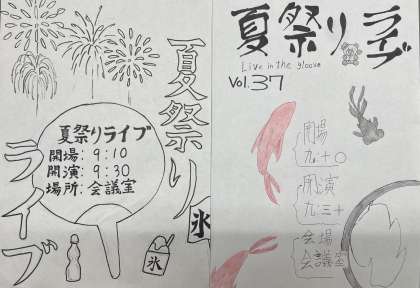 夏祭り
ライブ
夏祭りライブ
開場: 9:10
開演: 9:30
場所: 会議室
氷
氷
夏祭りライブ
Live in the gloove
Vol.37
開場
九:十〇
開演
九:三十
会場
会議室